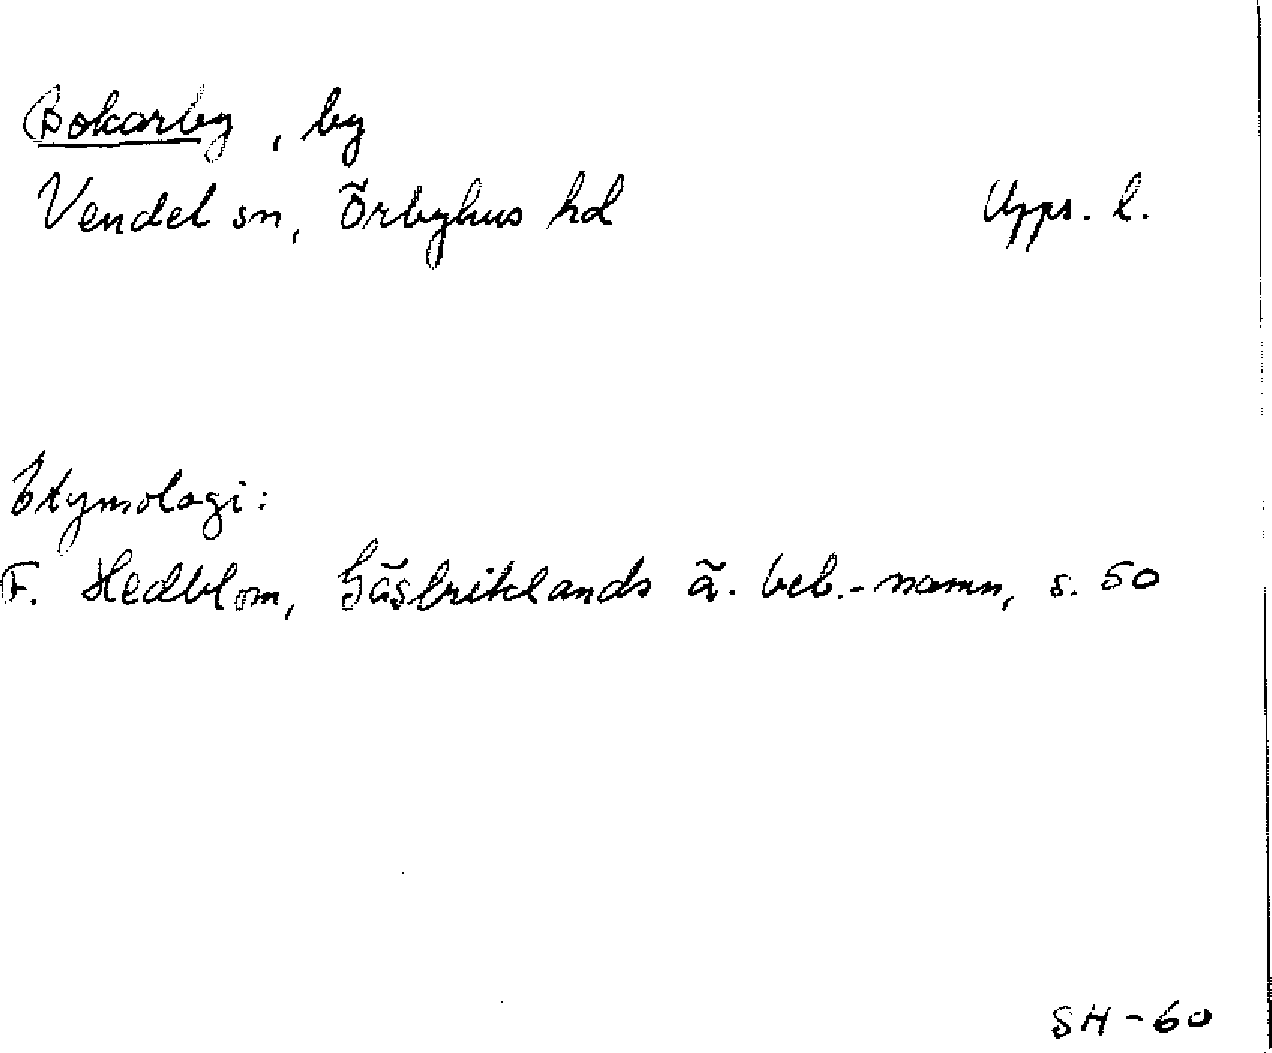 Bokarby, by
Vendel sn, Örbyhus hd Upps. l.
Etymologi:
F. Hedblom, Gästriklands ä. beb.-namn, s. 50
SH-60